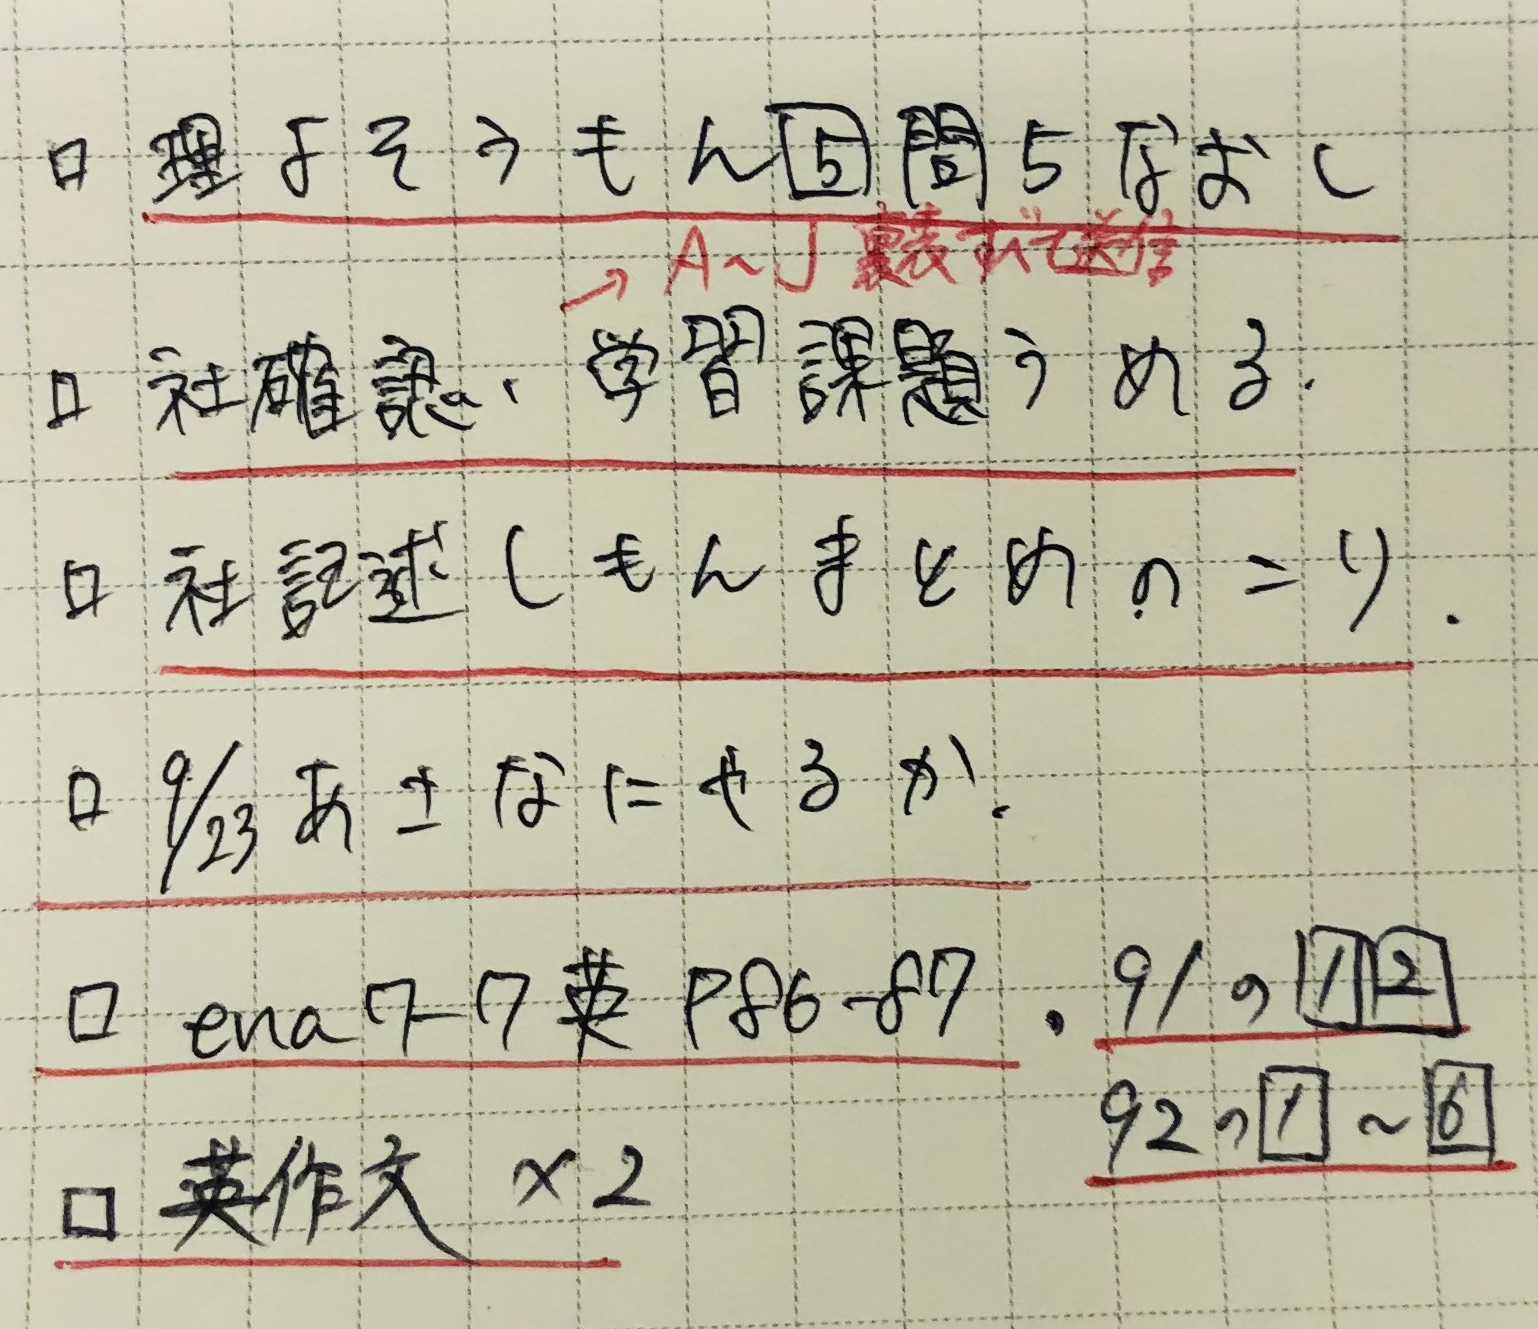 □ 理よそうもん5問5なおし
→ A~J 裏表すべて送信
□ 社確認、学習課題うめる.
□ 社記述しもんまとめのこり.
□ 9/23 あさなにやるか.
□ ena 7-7 英 P86-87. 91の12
92の1~6
□ 英作文 ×2